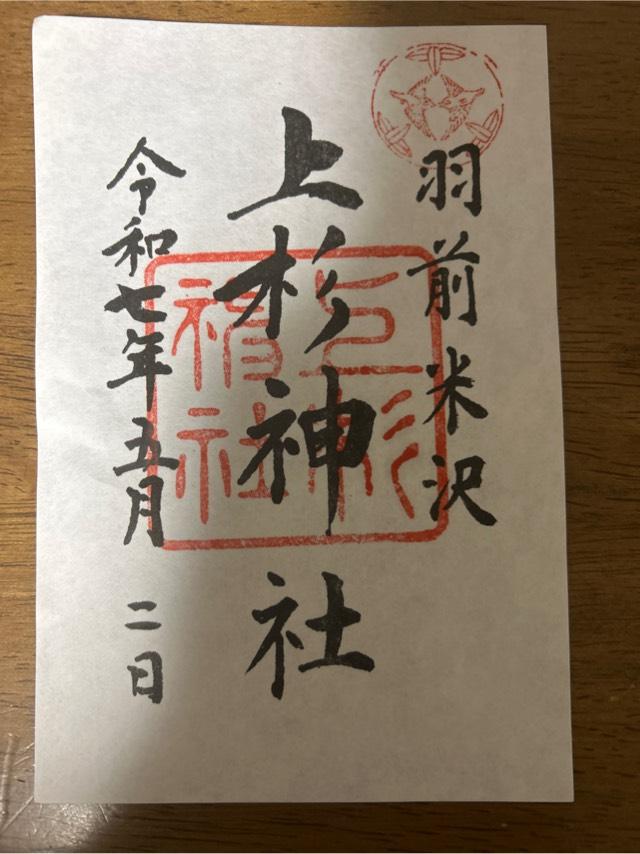 羽前米沢
上杉神社
上杉神社
令和七年五月二日